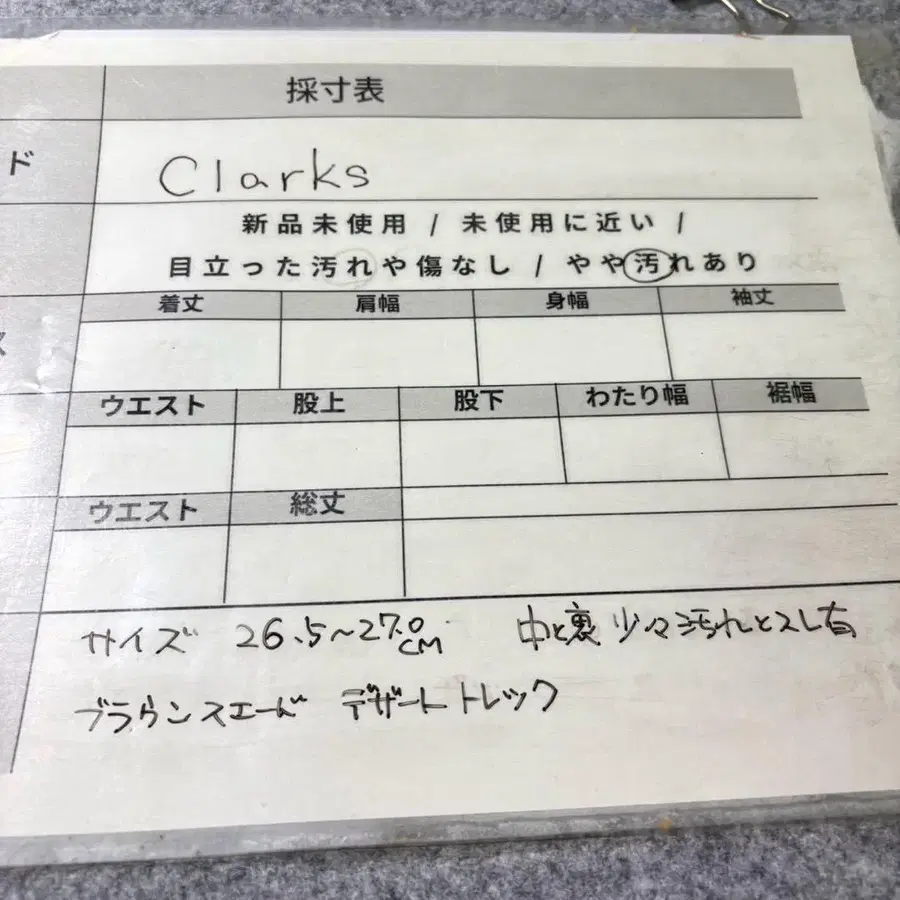 採寸表
ド
Clarks
新品未使用 / 未使用に近い /
目立った汚れや傷なし / やや汚れあり
着丈 肩幅 身幅 袖丈
ウエスト 股上 股下 わたり幅 裾幅
ウエスト 総丈
サイズ 26.5~27.0cm 中と裏 少々汚れとスレ有
ブラウンスエード デザートトレック